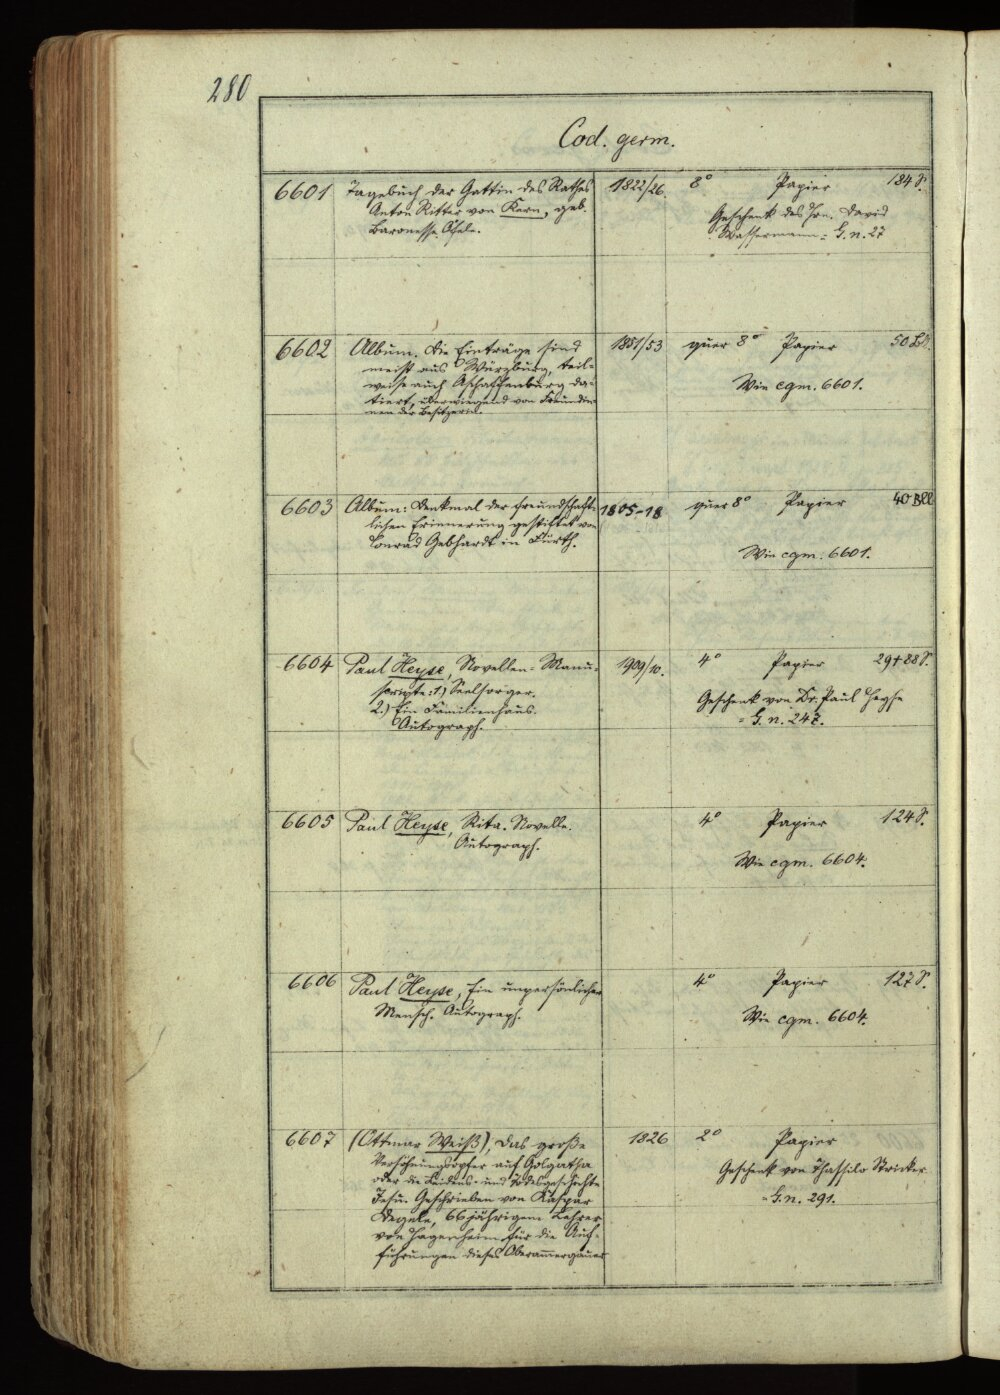 280
Cod. germ.
6601 Tagebuch der Gattin des Rathes 1822/26. 8° Papier 184 S.
Anton Ritter von Kern, geb. Geschenk des Hrn. David
Baronesse Wassermann = G. n. 27
6602 Album. Die Einträge sind 1851/53 quer 8° Papier 50 Bll.
meist aus Würzburg, teil-
weise auch Aschaffenburg da- Wie cgm. 6601.
tiert, überwiegend von Freundin-
nen der Besitzerin.
6603 Album: Denkmal der freundschaft- 1805-18 quer 8° Papier 40 Bll
lichen Erinnerung gestiftet von
Conrad Gebhardt in Fürth. Wie cgm. 6601.
6604 Paul Heyse, Novellen-Manu- 1909/10. 4° Papier 29+88 S.
scripte: 1.) Seelsorger. Geschenk von Dr. Paul Heyse
2.) Ein Familienhaus. = G. n. 247.
Autograph.
6605 Paul Heyse, Rita. Novelle. 4° Papier 124 S.
Autograph. Wie cgm. 6604.
6606 Paul Heyse, Ein unpersönlicher 4° Papier 127 S.
Mensch. Autograph. Wie cgm. 6604.
6607 (Ottmar Weiß), Das große 1826 2° Papier
Versöhnungsopfer auf Golgatha Geschenk von Thassilo Stricker
oder die Leidens- und Todesgeschichte = G. n. 291.
Jesu. Geschrieben von Kaspar
66jährigem Lehrer
von für die Auf-
führungen dieses Oberammergauer